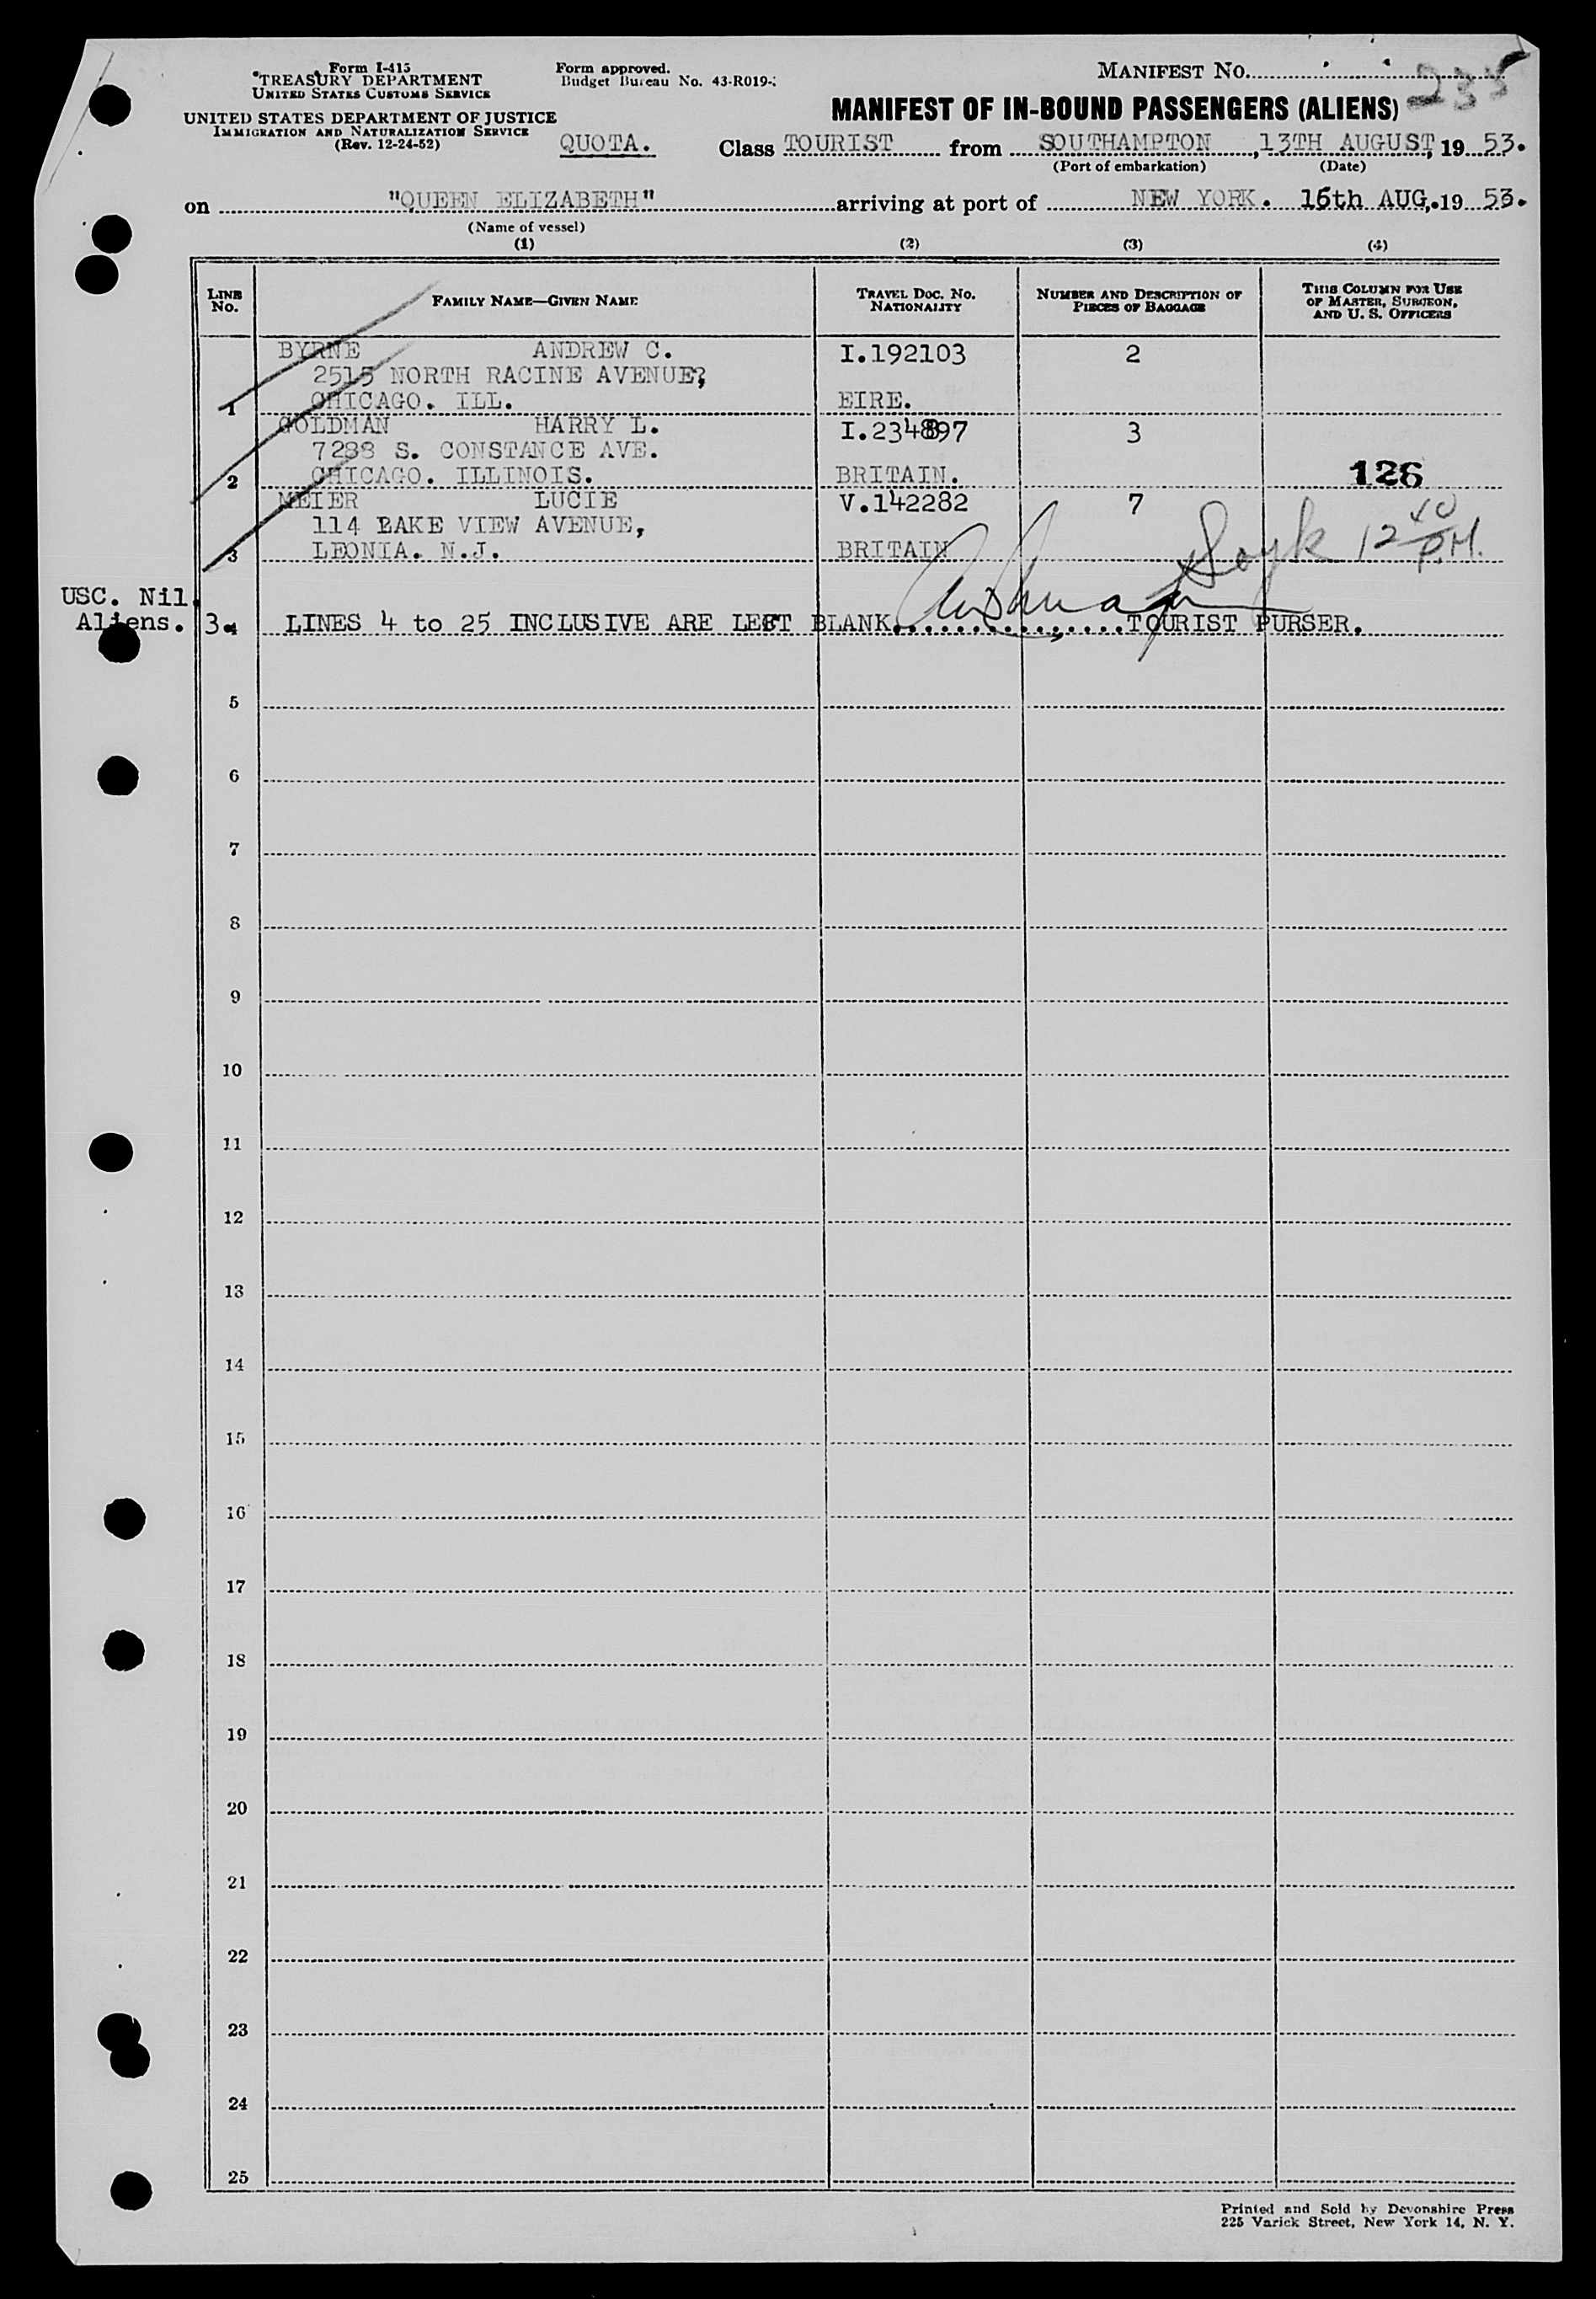 Form I-415
TREASURY DEPARTMENT
UNITED STATES CUSTOMS SERVICE
UNITED STATES DEPARTMENT OF JUSTICE
IMMIGRATION AND NATURALIZATION SERVICE
(Rev. 12-24-52)
Form approved.
Budget Bureau No. 43-R019-
MANIFEST No. 235
MANIFEST OF IN-BOUND PASSENGERS (ALIENS)
QUOTA. Class TOURIST from SOUTHAMPTON, 13TH AUGUST, 19 53.
(Port of embarkation) (Date)
on "QUEEN ELIZABETH" arriving at port of NEW YORK. 16th AUG, 19 53.
(Name of vessel)
(1) (2) (3) (4)
LINE No. FAMILY NAME—GIVEN NAME TRAVEL DOC. NO. NATIONALITY NUMBER AND DESCRIPTION OF PIECES OF BAGGAGE THIS COLUMN FOR USE OF MASTER, SURGEON, AND U. S. OFFICERS
BYRNE ANDREW C. I.192103 2
2515 NORTH RACINE AVENUE?
1 CHICAGO. ILL. EIRE.
GOLDMAN HARRY L. I.234897 3
7288 S. CONSTANCE AVE.
2 CHICAGO. ILLINOIS. BRITAIN. 126
MEIER LUCIE V.142282 7
114 LAKE VIEW AVENUE, 12 40 PM.
3 LEONIA. N.J. BRITAIN
USC. Nil.
Aliens. 3. 4 LINES 4 to 25 INCLUSIVE ARE LEFT BLANK. TOURIST PURSER.
5
6
7
8
9
10
11
12
13
14
15
16
17
18
19
20
21
22
23
24
25
Printed and Sold by Devonshire Press
225 Varick Street, New York 14, N. Y.